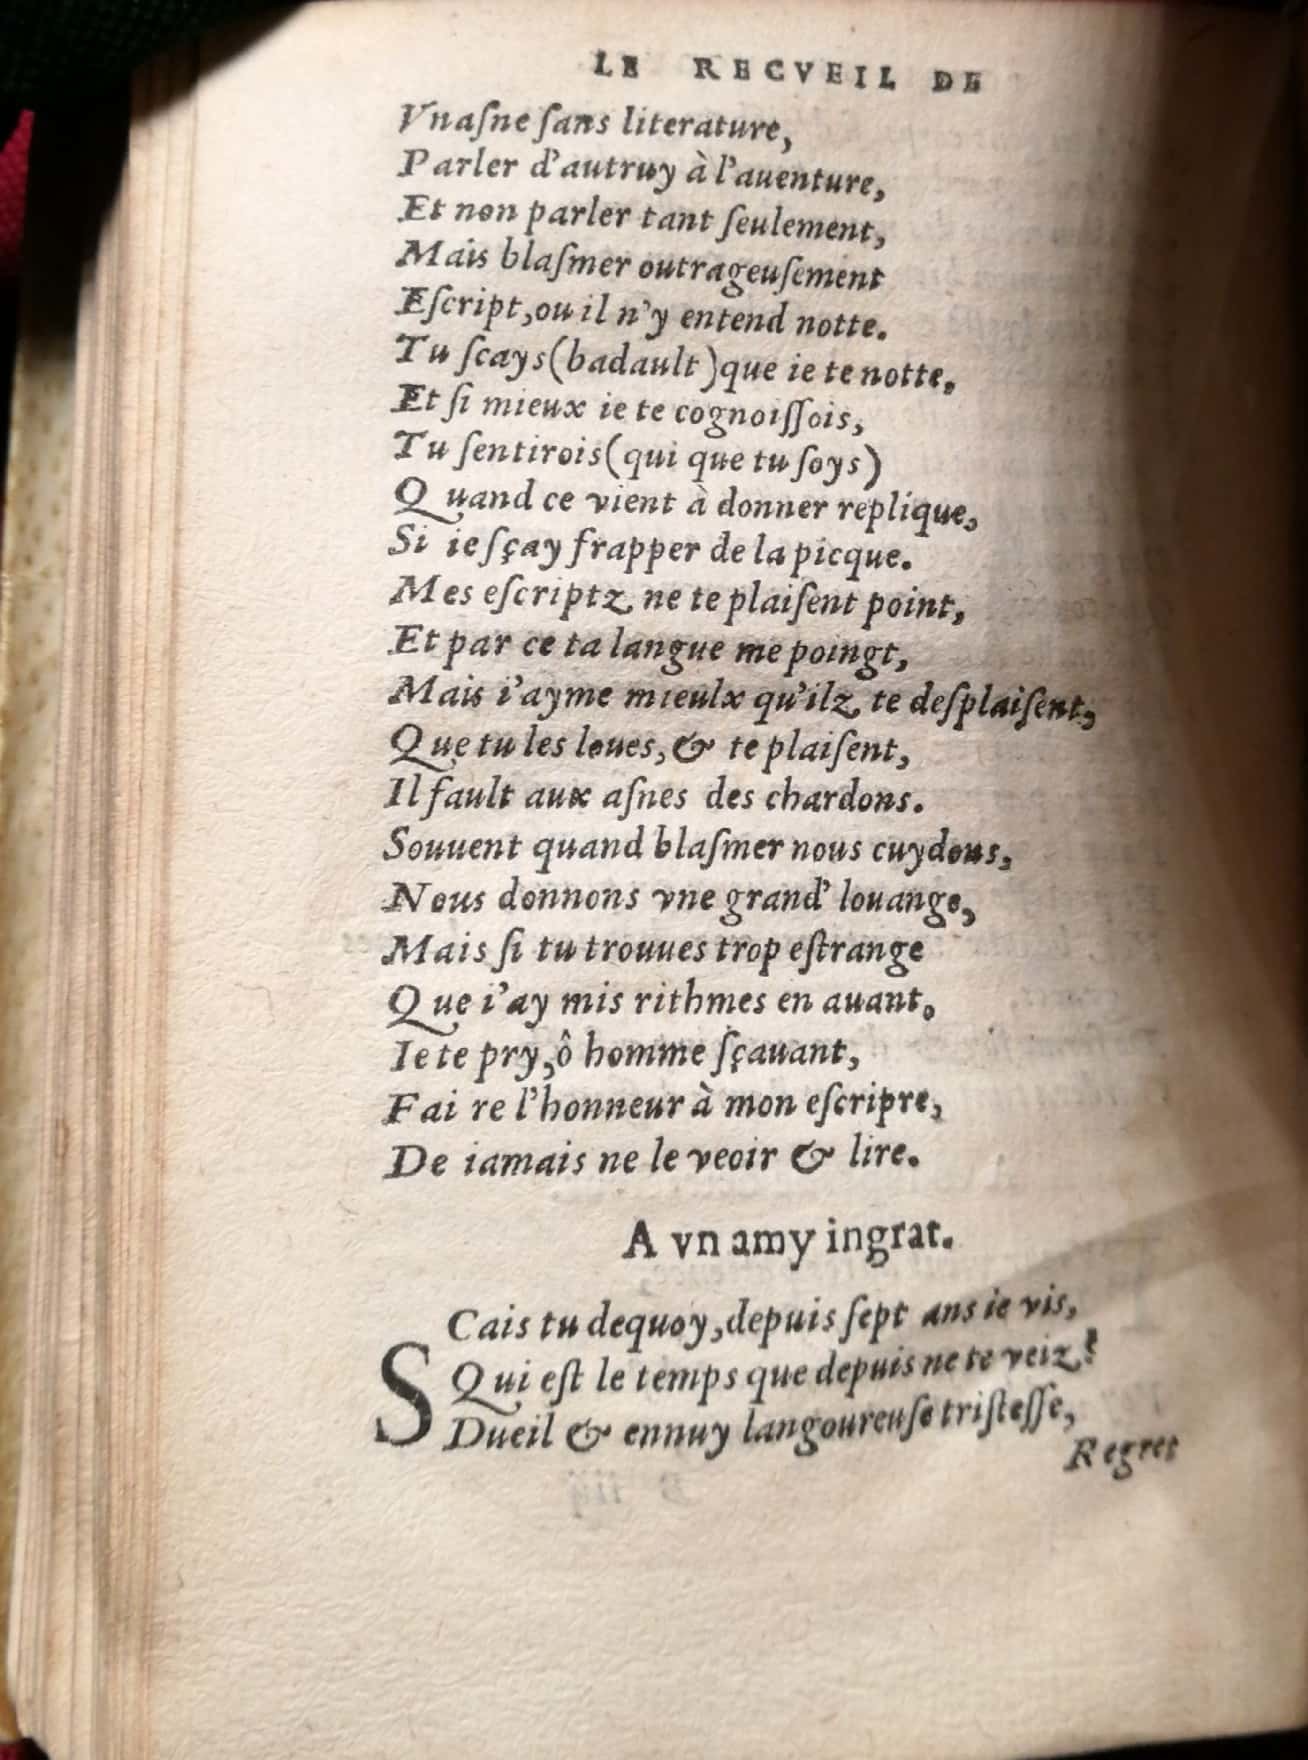 LE RECVEIL DE
Vn aſne ſans literature,
Parler d'autruy à l'auenture,
Et non parler tant ſeulement,
Mais blaſmer outrageuſement
Eſcript, ou il n'y entend notte.
Tu ſcays (badault) que ie te notte,
Et ſi mieux ie te cognoiſſois,
Tu ſentirois (qui que tu ſoys)
Quand ce vient à donner replique,
Si ie ſçay frapper de la picque.
Mes eſcriptz ne te plaiſent point,
Et par ce ta langue me poingt,
Mais i'ayme mieulx qu'ilz te deſplaiſent,
Que tu les loues, & te plaiſent,
Il fault aux aſnes des chardons.
Souuent quand blaſmer nous cuydons,
Nous donnons vne grand' louange,
Mais ſi tu trouues trop eſtrange
Que i'ay mis rithmes en auant.
Ie te pry, ô homme ſçauant,
Faire l'honneur à mon eſcripre,
De iamais ne le veoir & lire.
A vn amy ingrat.
SCais tu dequoy, depuis ſept ans ie vis,
Qui eſt le temps que depuis ne te veiz?
Dueil & ennuy langoureuſe triſteſſe,
Regret